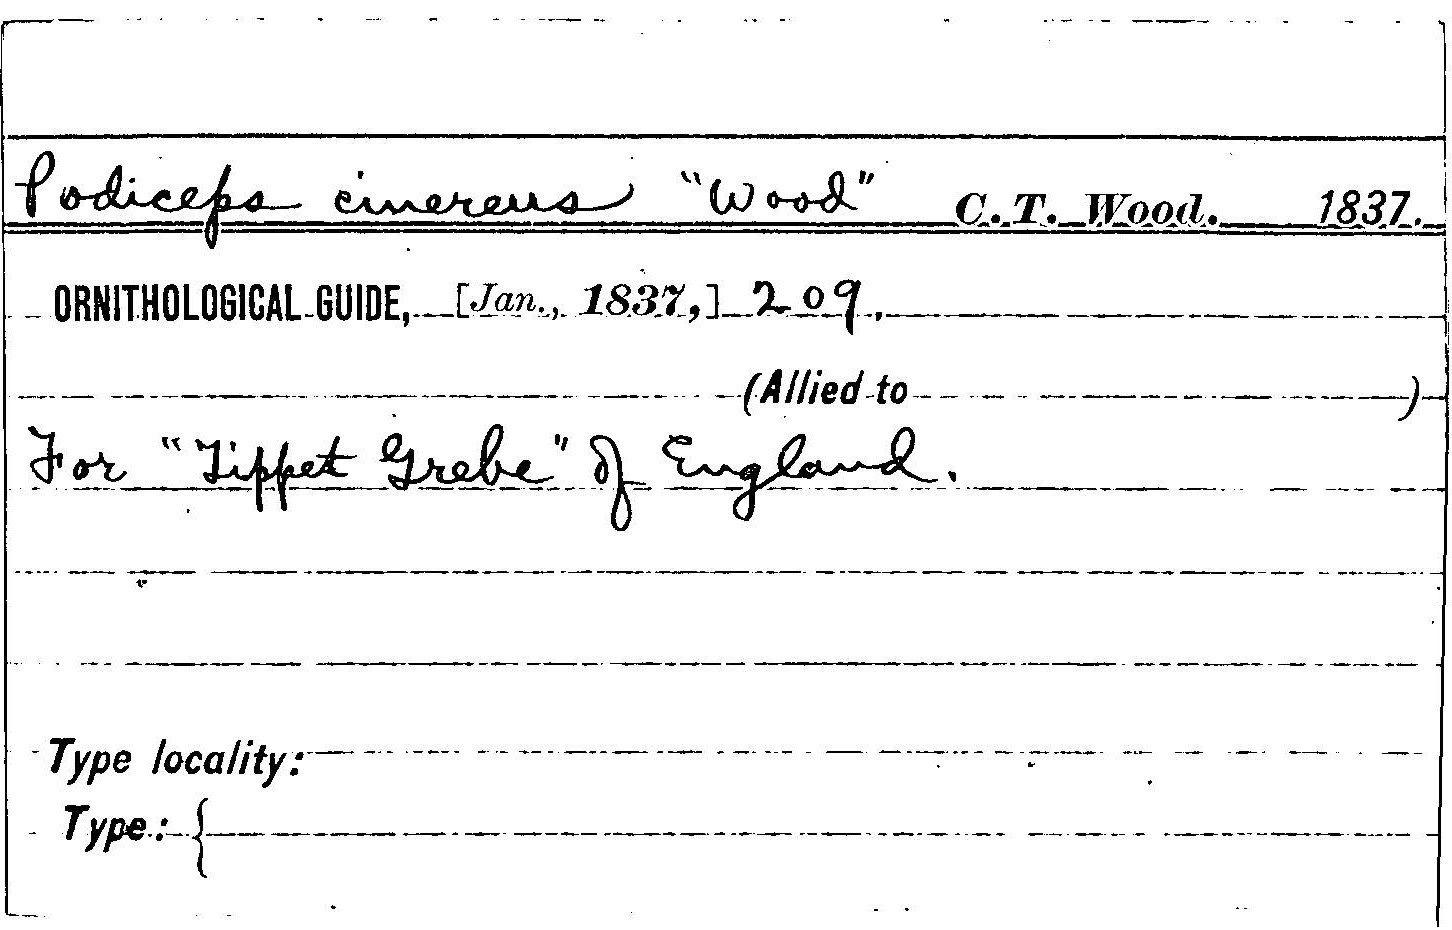 Podiceps cinereus "Wood" C. T. Wood. 1837.
ORNITHOLOGICAL GUIDE, [Jan., 1837,] 209.
(Allied to )
For "Tippet Grebe" of England.
Type locality:
Type: {